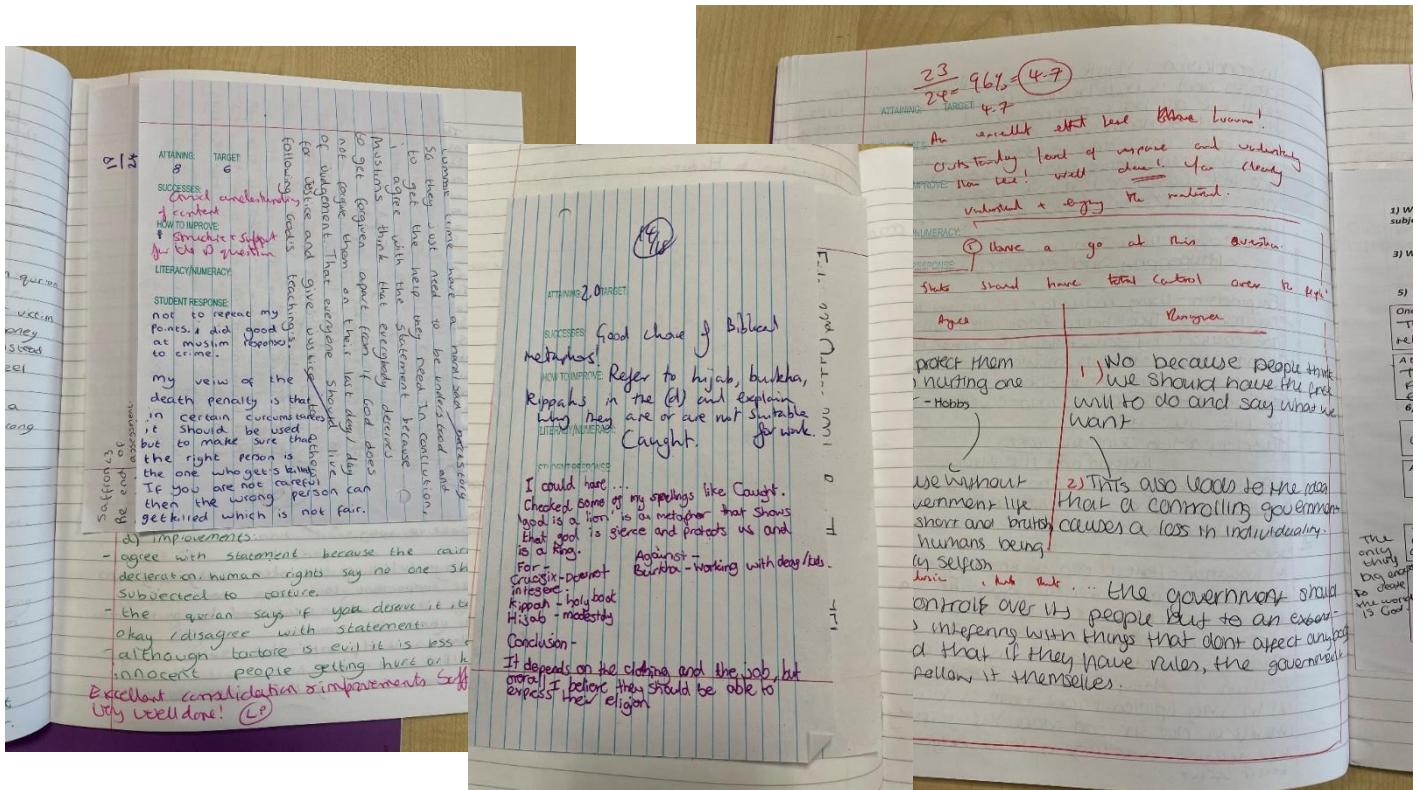 19/24
ATTAINING: TARGET:
8 6
SUCCESSES:
Good understanding
of content
HOW TO IMPROVE:
structure + support
for the D question
LITERACY/NUMERACY:
STUDENT RESPONSE:
not to repeat my
points. i did good
at muslim response
to crime.
my veiw of the
death penalty is that
in certain curcumstances
it should be used
but to make sure that
the right person is
the one who get's killed.
If you are not careful
then the wrong person can
get killed which is not fair.
commit crime have a
So they just need to be understood and
to get the help they need. In conclusion,
i agree with the statement because
Muslims think that everybody deserves
to get forgiven apart from if God does
not forgive them on their last day / day
of Judgement. That everyone should live
for justice and give justice to others
following God's teachings.
Re end of
assessment
d) improvements:
- agree with statement because the cairo
decleration human rights say no one sh
subjected to torture.
- the qurian says if you deserve it, it
okay / disagree with statement
- although torture is evil it is less
innocent people getting hurt or
Excellent consolidation + improvements Saff
Very well done! LP
ATTAINING: 2.0 TARGET:
SUCCESSES: Good choice of Biblical
metaphor!
HOW TO IMPROVE: Refer to hijab, burkha,
Kippahs in the (d) and explain
why they are or are not suitable
for work.
LITERACY/NUMERACY:
Caught.
STUDENT RESPONSE
I could have...
Checked some of my spellings like Caught.
'god is a lion' is a metaphor that shows
that god is fierce and protects us and
is a king.
For - Against -
Crucsix - Doe not Burkha - Working with deag/kids.
intefere
Kippah - holy book
Hijab - modestdy
Conclusion -
It depends on the clothing and the job, but
overall I believe they should be able to
express their religion
23/24 = 96% = 4.7
ATTAINING: TARGET:
4.7
An excellent effort here
Outstanding level of response and understanding
IMPROVE: shown here! Well done! You clearly
understand + enjoy the material.
NUMERACY:
Have a go at this question.
RESPONSE:
State should have total control over the people
Agree Disagree
protect them
hurting one
- Hobbs
use without
vernment life
short and brutish
humans being
ly selfish
1) No because people think
we should have the free
will to do and say what we
want
2) This also leads to the idea
that a controlling government
causes a loss in individuality.
... the government should
ontrols over its people but to an extent
intefering with things that dont affect anybody
d that if they have rules, the government
follow it themselfes.
The
only
thing
big enough
to create
the world
is God.